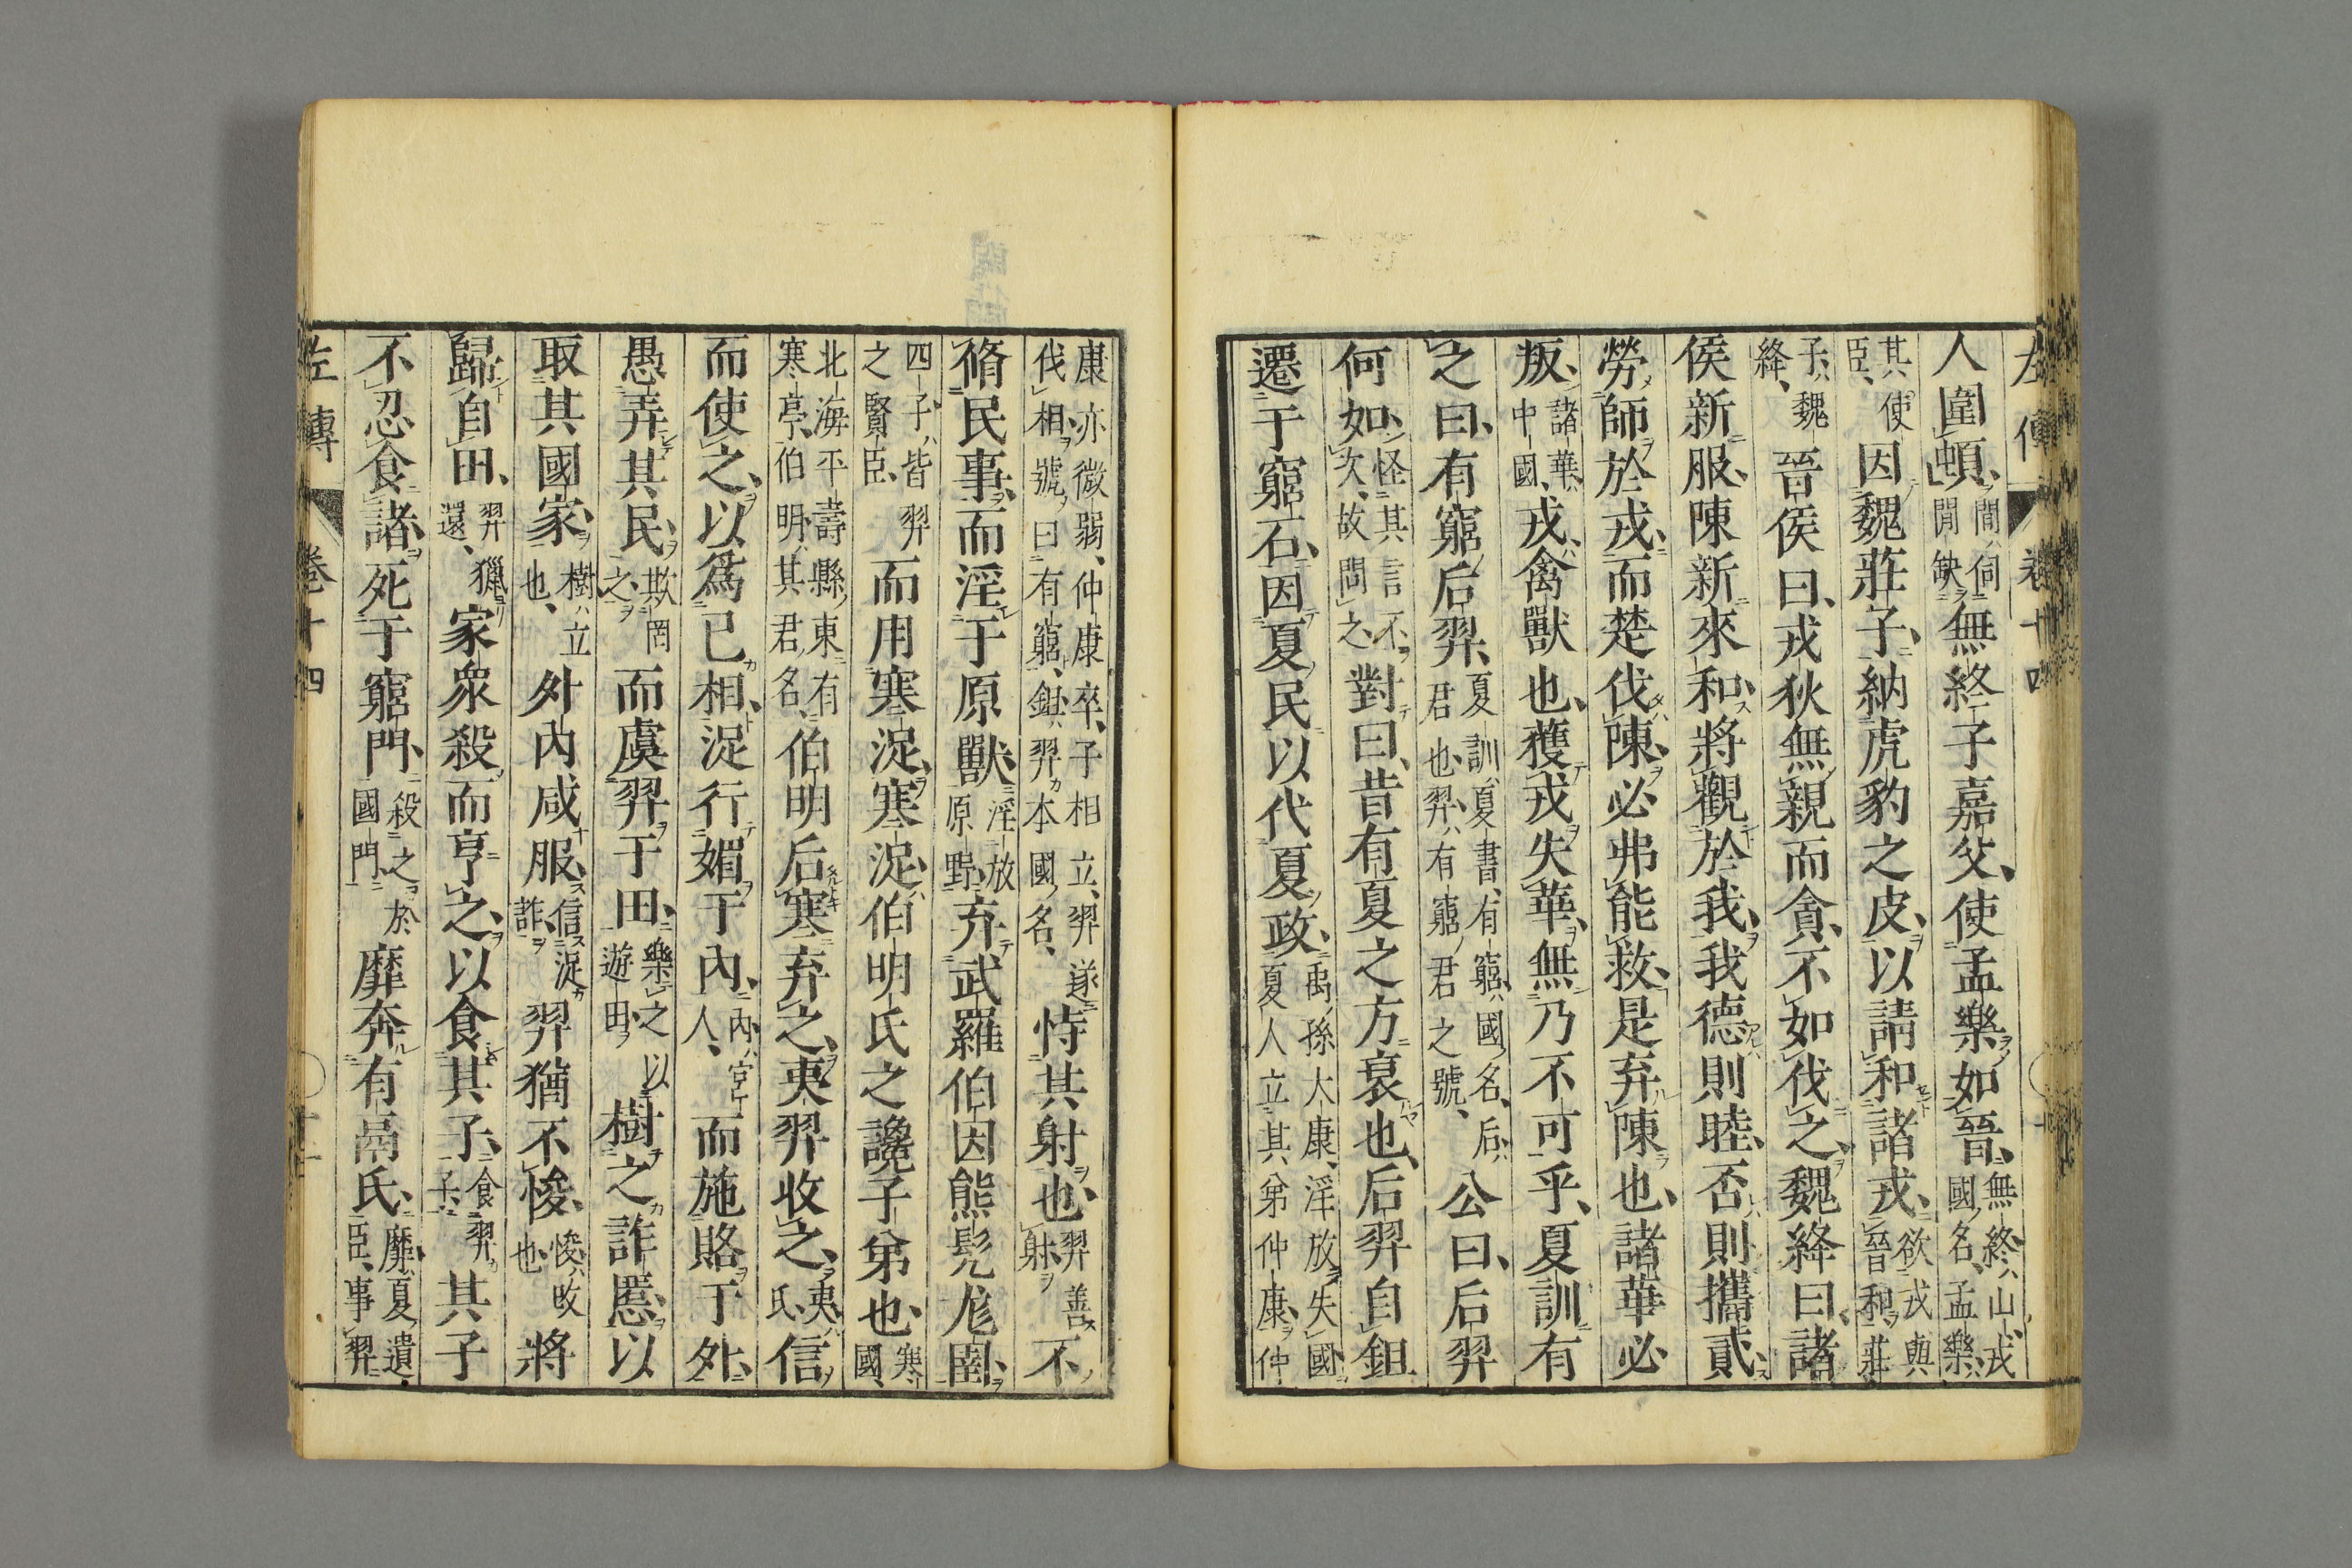 左傳 卷十四
人圍頓、間伺間缺無終子嘉父、使孟樂如晉、無終山戎國名、孟樂
其使臣、因魏莊子、納虎豹之皮、以請和諸戎、欲戎與晉和、莊
子魏絳、晉侯曰、戎狄無親而貪、不如伐之、魏絳曰、諸
侯新服、陳新來和、將觀於我、我德則睦、否則攜貳、
勞師於戎、而楚伐陳、必弗能救、是弃陳也、諸華必
叛、諸華中國、戎禽獸也、獲戎失華、無乃不可乎、夏訓有
之曰、有窮后羿、夏訓夏書、有窮國名、后君也、羿有窮君之號、公曰、后羿
何如、怪其言不次、故問之對曰、昔有夏之方衰也、后羿自鉏
遷于窮石、因夏民以代夏政、禹孫大康、淫放失國、夏人立其弟仲康、仲
康亦微弱、仲康卒、子相立、羿遂伐相、號曰有窮、鉏羿本國名、恃其射也、羿善射不
脩民事、而淫于原獸、淫放原野弃武羅伯因熊髡尨圉、
四子皆羿之賢臣、而用寒浞、寒浞伯明氏之讒子弟也、寒國、
北海平壽縣東有寒亭、伯明其君名、伯明后寒弃之、夷羿收之、夷氏、信
而使之、以爲己相、浞行媚于內、內宮人、而施賂于外、
愚弄其民、欺罔之、而虞羿于田、樂之以遊田、樹之詐慝、以
取其國家、樹立也、外內咸服、信浞詐、羿猶不悛、悛改也將
歸自田、羿獵還、家衆殺而亨之、以食其子、食羿子、其子
不忍食諸、死于窮門、殺之於國門靡奔有鬲氏、靡夏遺臣、事羿
左傳 卷十四 十一